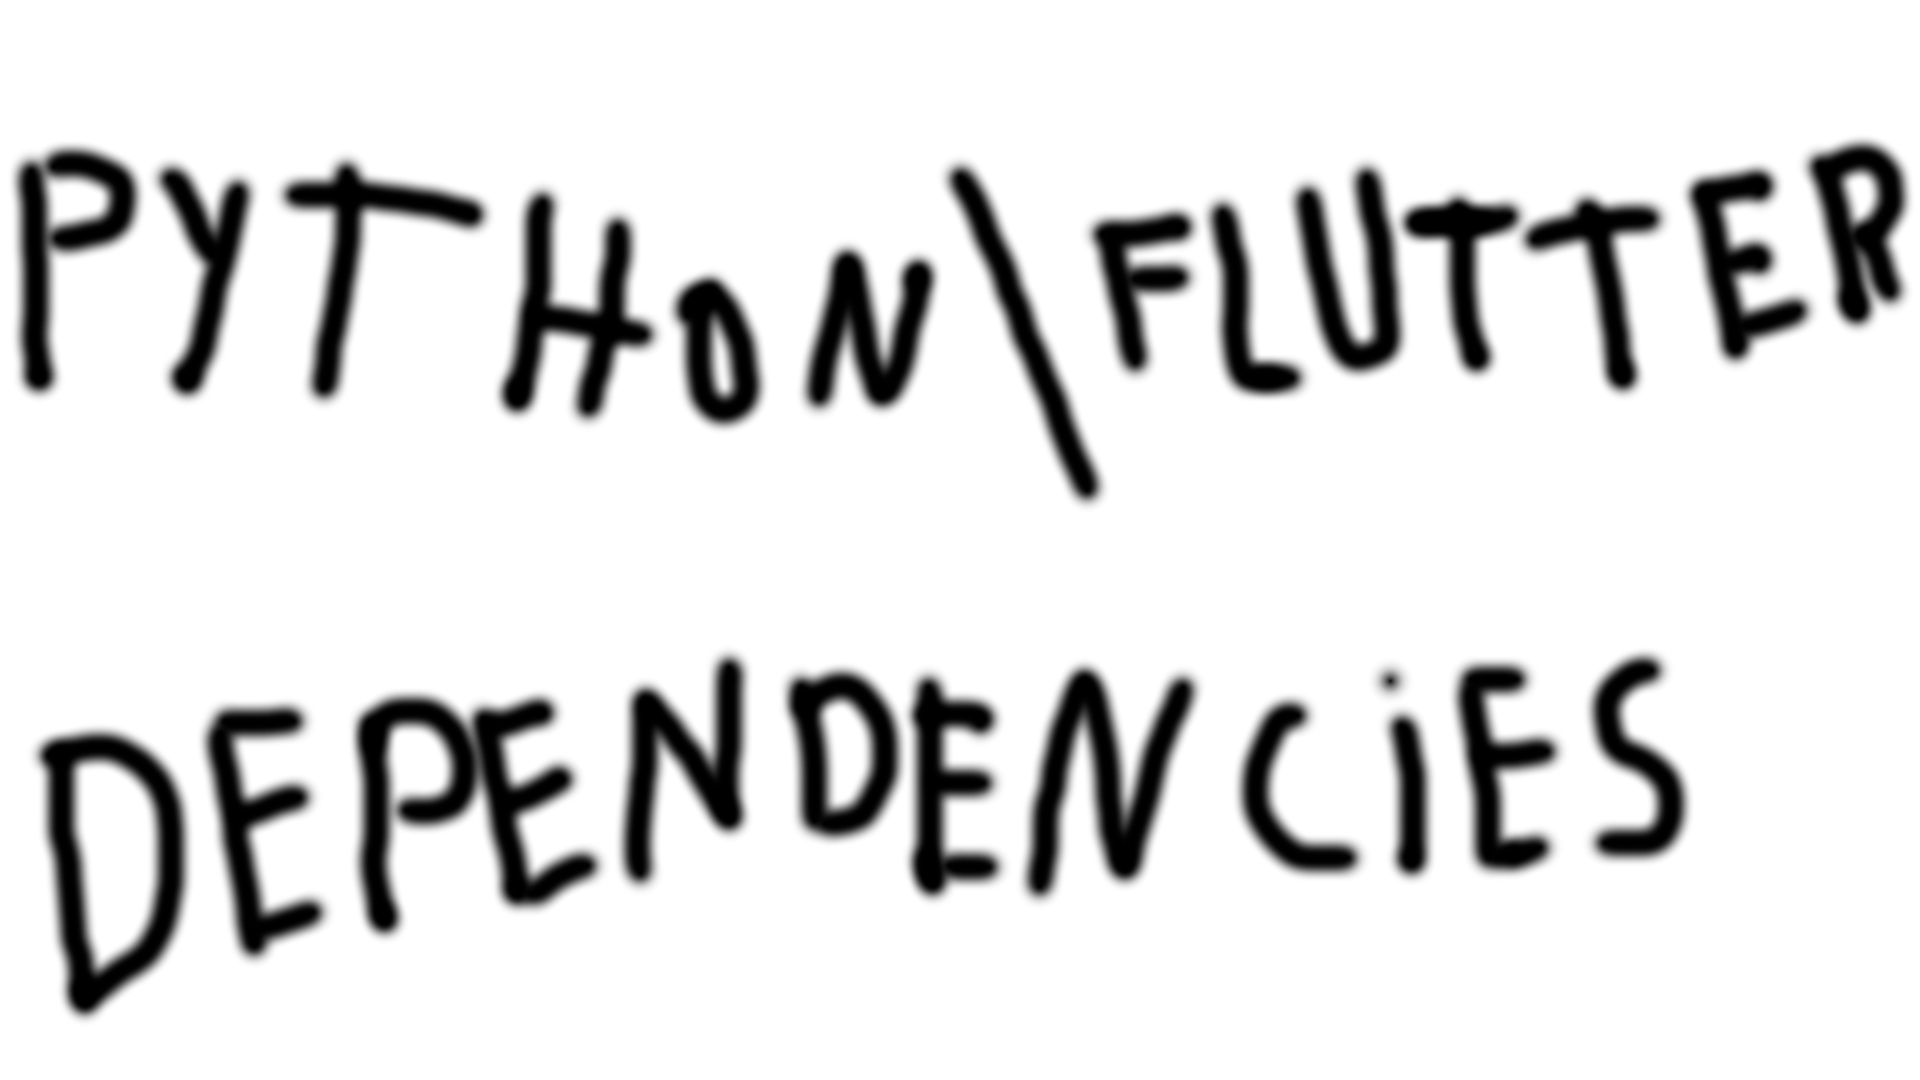 PYTHON\FLUTTER
DEPENDENCiES